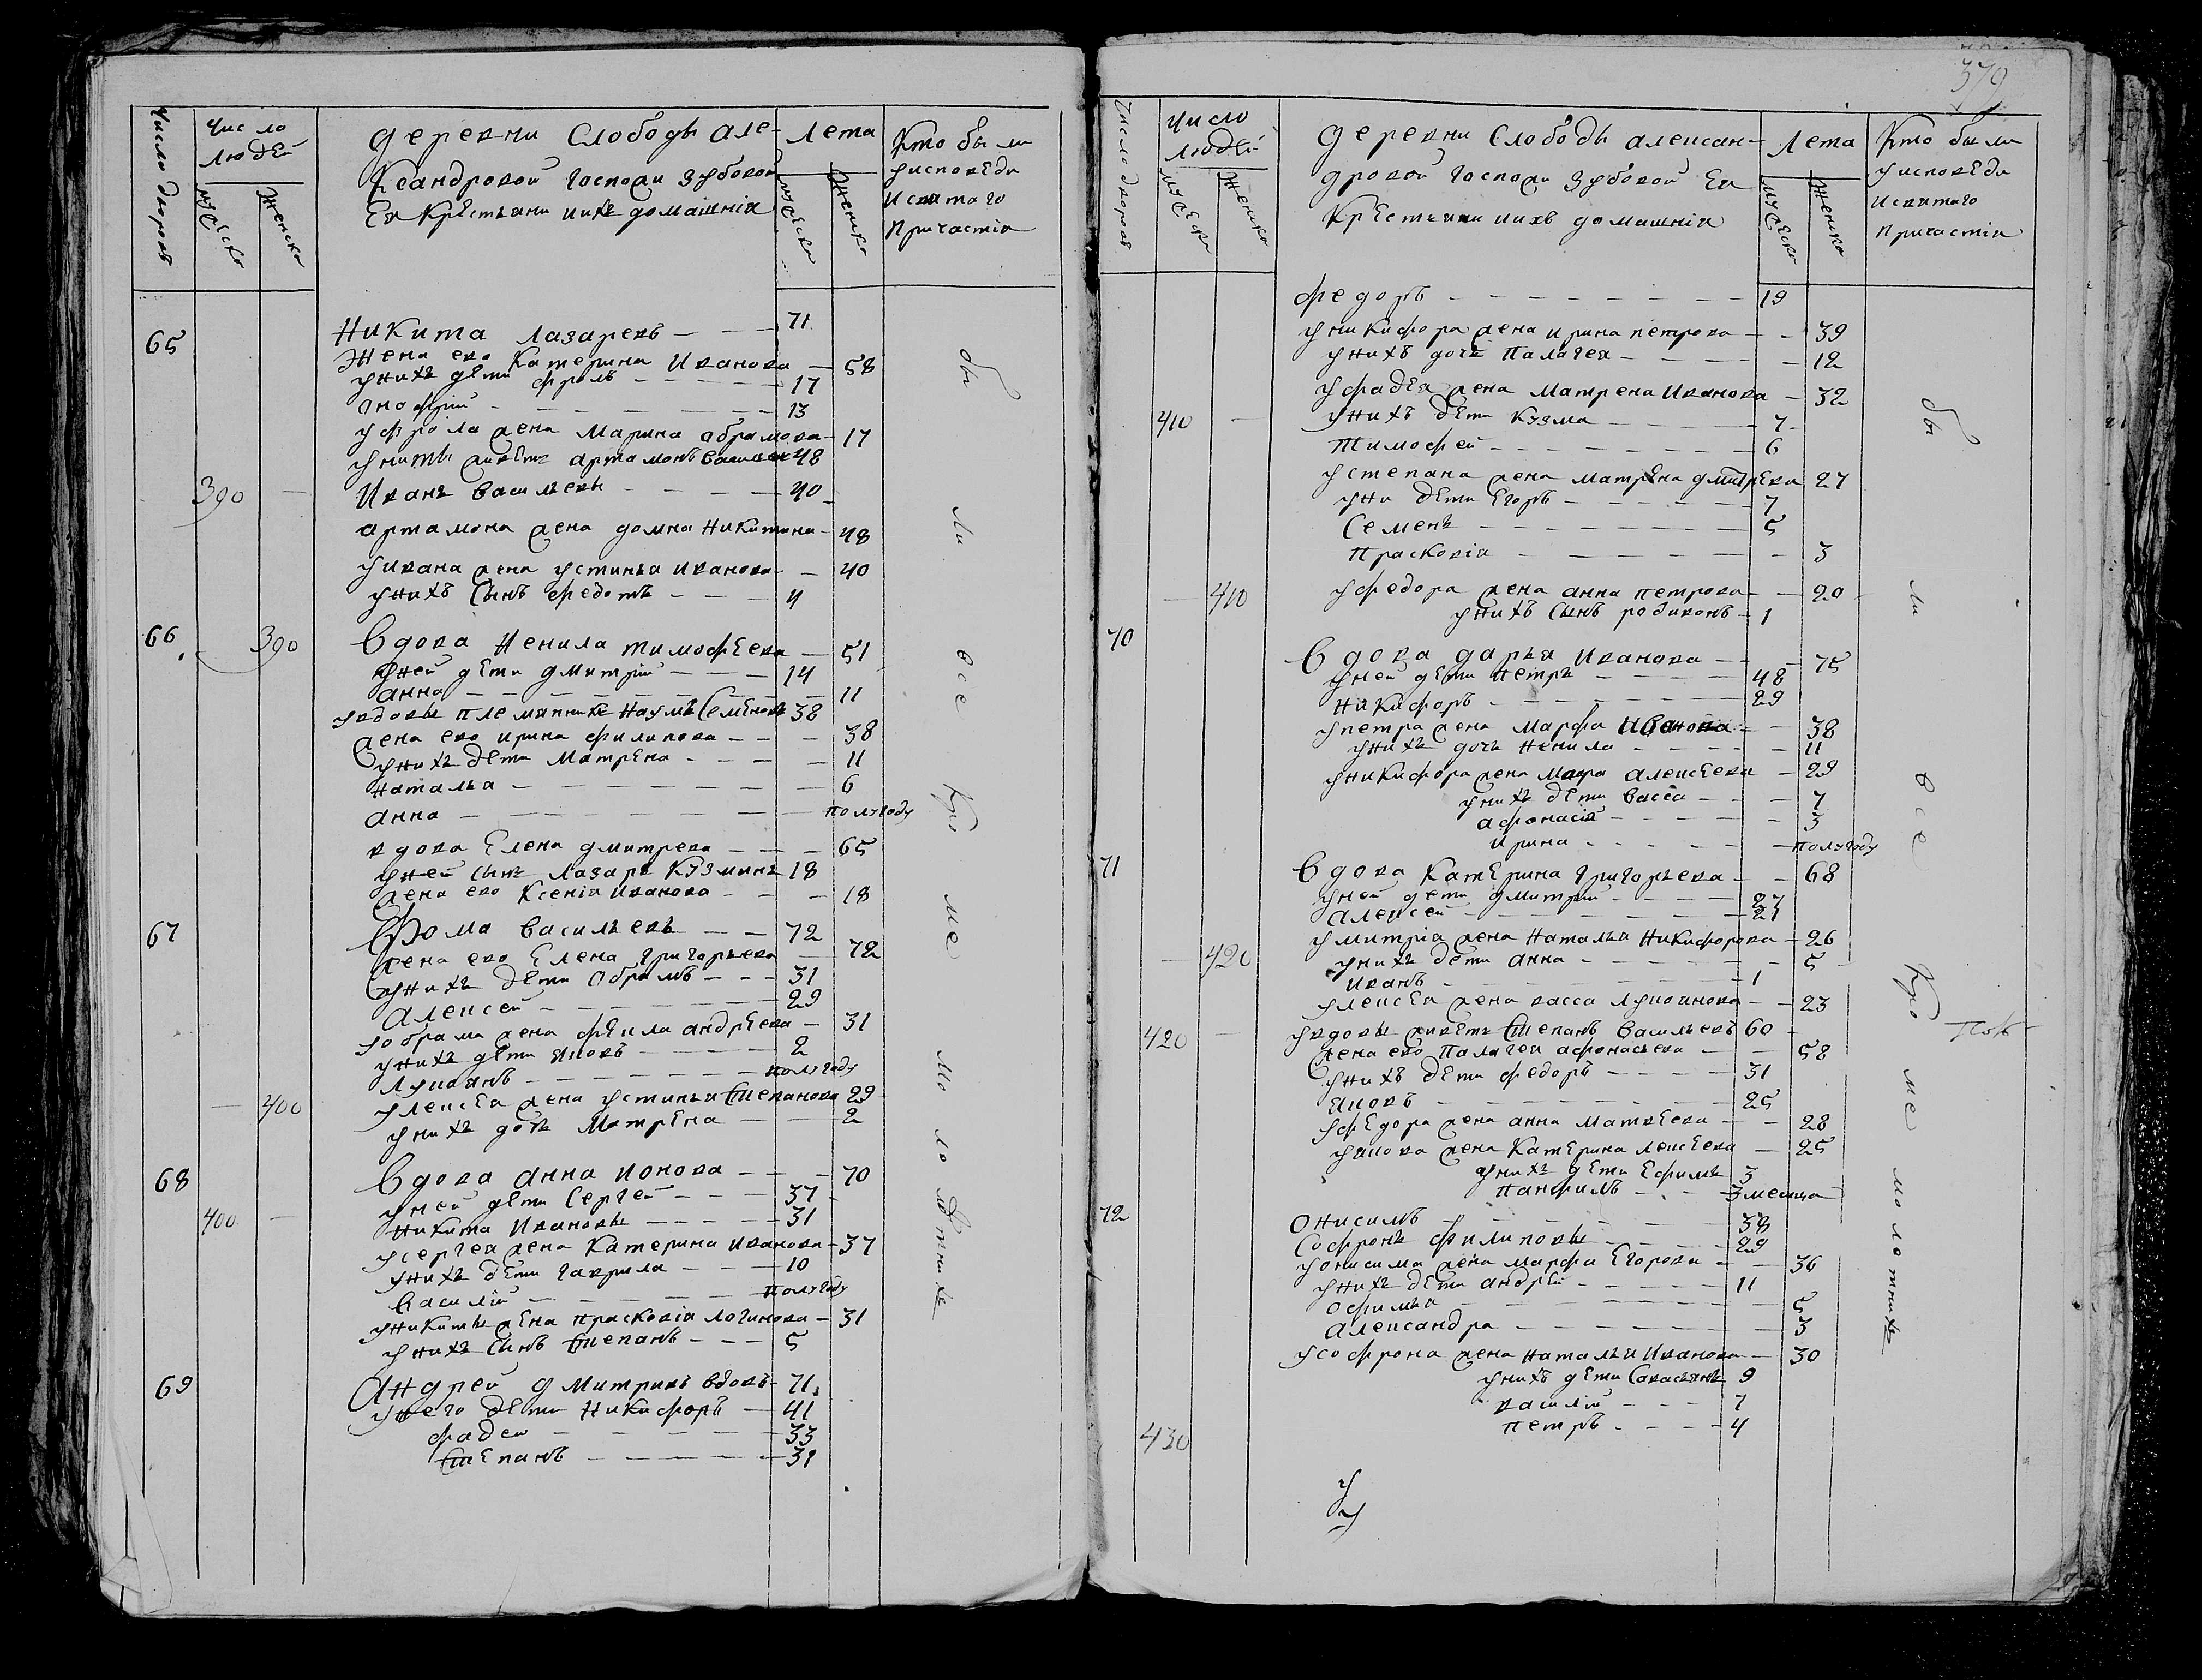 Число дворовъ
Число
людей
мужеска
Женска
деревни Слободы Але-
ксандровой Госпожи Зубовой
Ея Крѣстьяни ихъ домашнія
Лета
мужеска
Женска
Кто были
у исповѣди
и святаго
Причастія
65 Никита Лазаревъ 71
Жена ево Катерина Иванова 58
у нихъ дѣти Фролъ 17
Анофрій 13
у Фрола жена Марина Абрамова 17
у Никиты живѣтъ Артамонъ Васильевъ 48
390 Иванъ Васильевы 40
Артамона жена Домна Никитина 48
у Ивана жена Устинья Иванова 40
у нихъ сынъ Федотъ 4
66 390 Вдова Ненила Тимофѣева 51
у ней дѣти Дмитрій 14
Анна 11
у вдовы племянникъ Наумъ Семѣновъ 38
жена ево Ирина Филипова 38
у нихъ дѣти Матрѣна 11
Наталья 6
Анна полугоду
вдова Елена Дмитрева 65
у ней сынъ Лазарь Кузминъ 18
жена ево Ксенія Иванова 18
67 Фома Васильевъ 72
жена ево Елена Григорьева 72
у нихъ дѣти Обрамъ 31
Алексей 29
у Обрама жена Фѣкла Андрѣева 31
у нихъ дѣти Яковъ 2
Лукоянъ полугоду
400 у Лексѣя жена Устинья Степанова 29
у нихъ дочь Матрѣна 2
68 Вдова Анна Ионова 70
у ней дѣти Сергей 37
400 Никита Ивановы 31
у Сергея жена Катерина Иванова 37
у нихъ дѣти Гаврила 10
Василій полугоду
у Никиты жена Прасковія Логинова 31
у нихъ сынъ Степанъ 5
69 Андрей Дмитривъ вдовъ 71
у него дѣти Никифоръ 41
Фадеи 33
Стѣпанъ 31
бы ли все кро ме мо ло дтнихъ
379
Число дворовъ
число
людей
мужеска
Женска
деревни Слободы алексан-
дровой Госпожи Зубовой Ея
Крѣстьяни ихъ домашнія
Лета
мужеска
Женска
Кто были
у исповѣди
и святаго
Причастія
Федоръ 19
у Никифора жена Ирина Петрова 39
у нихъ дочь Палагея 12
у Фадѣя жена Матрена Иванова 32
410 у нихъ дѣти Кузма 7
Тимофей 6
у Степана жена Матрѣна Дмитрѣва 27
у ни дѣти Егоръ 7
Семенъ 5
Прасковія 3
410 у Федора жена Анна Петрова 20
у нихъ сынъ Родивонъ 1
70 Вдова Дарья Иванова 75
у ней дѣти Петръ 48
Никифоръ 29
у Петра жена Марфа Иванова 38
у нихъ дочь Ненила 11
у Никифора жена Мавра Алексѣева 29
у нихъ дѣти Васса 7
Афонасія 3
Ирина полугоду
71 Вдова Катѣрина Григорьева 68
у ней дѣти Дмитрій 27
Алексей 21
у Митрія жена Наталья Никифорова 26
420 у нихъ дѣти Анна 5
Иванъ 1
у Лексѣя жена Васса Лукоянова 23
420 у вдовы живетъ Степанъ Васильевъ 60
жена ево Палагея Афонасьева 58
у нихъ дѣти Федоръ 31
Яковъ 25
у Фѣдора жена Анна Матвѣева 28
у Якова жена Катѣрина Лексѣева 25
у нихъ дѣти Ефимъ 3
Панфилъ 3 месяца
72 Онисимъ 38
Софронъ Филиповы 29
у Онисима жена Марфа Егорова 36
у нихъ дѣти Андрѣй 11
Офимья 5
Александра 3
у Софрона жена Наталья Иванова 30
у нихъ дѣти Савасьянъ 9
Василій 7
430 Петръ 4
бы ли все кро ме мо ло тнихъ